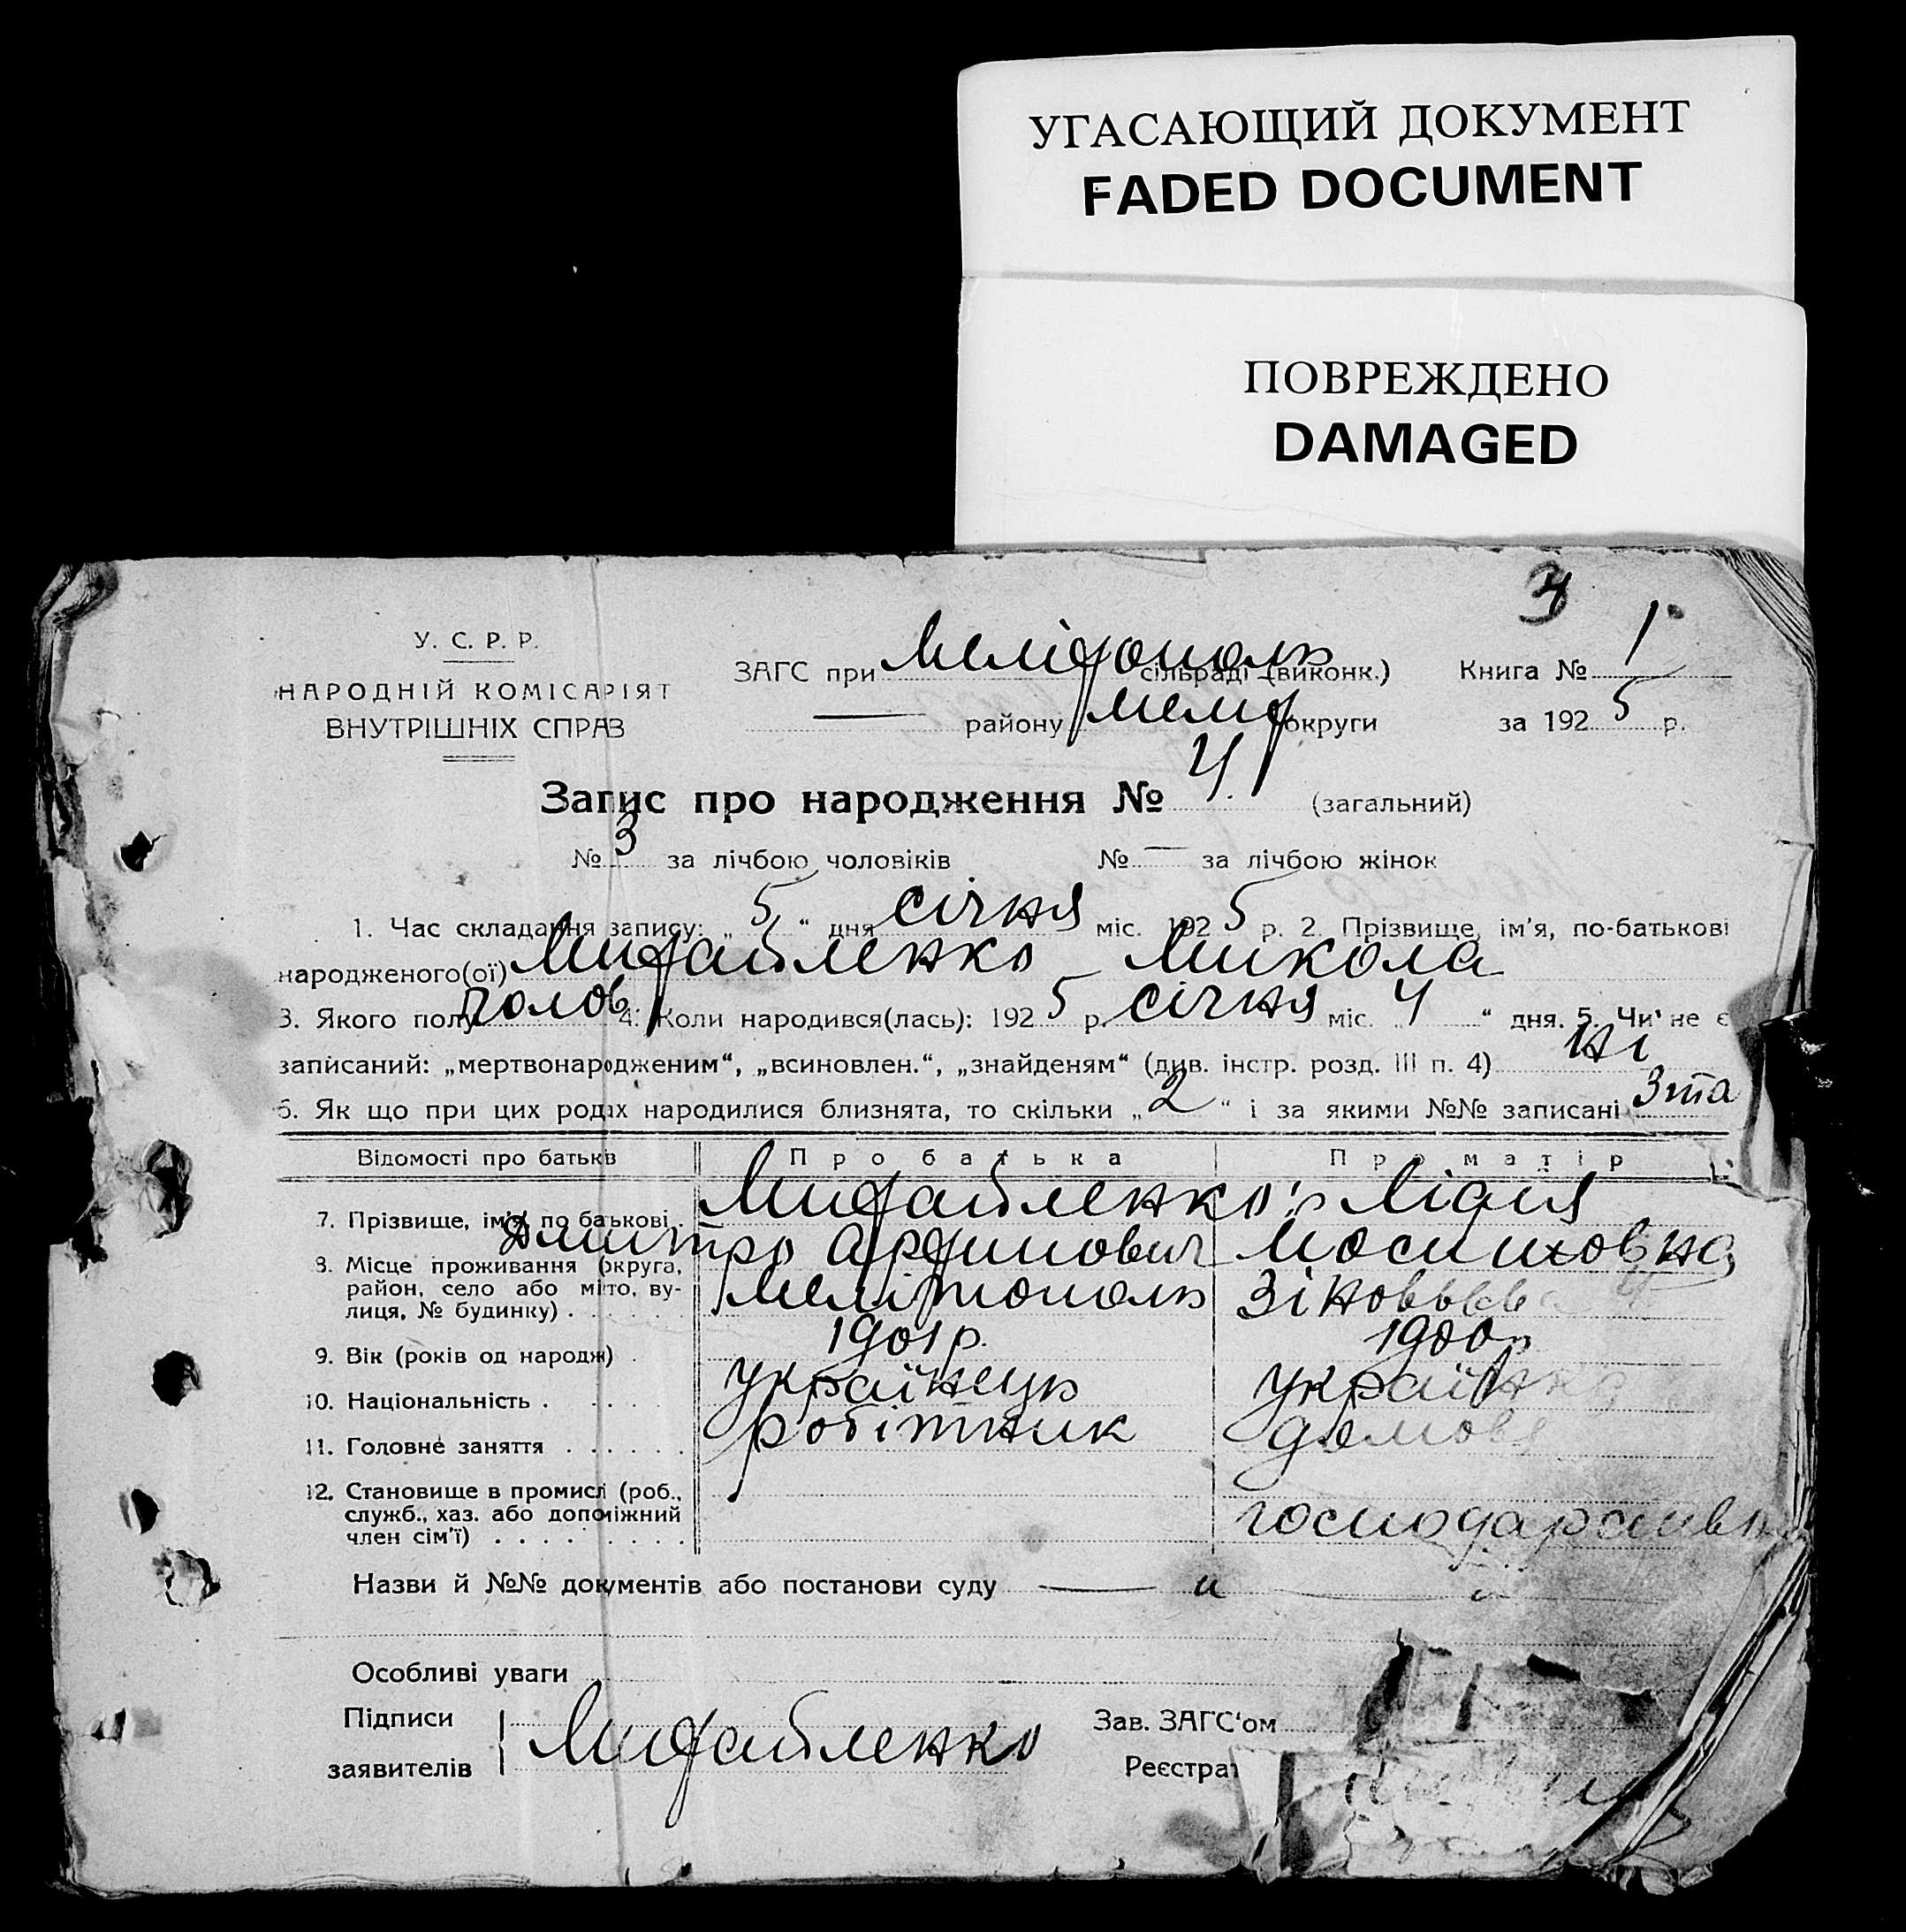 УГАСАЮЩИЙ ДОКУМЕНТ
FADED DOCUMENT
ПОВРЕЖДЕНО
DAMAGED
У. С. Р. Р.
НАРОДНІЙ КОМІСАРІЯТ
ВНУТРІШНІХ СПРАВ
ЗАГС при Мелітополь сільраді (виконк.)
району Мелт округи
Книга № 1
за 1925 р.
Запис про народження № 4. (загальний)
№ 3 за лічбою чоловіків № — за лічбою жінок
1. Час складання запису: „5“ дня січня міс. 1925 р. 2. Прізвище, ім'я, по-батькові
народженого(ої) Михайленко Микола
3. Якого полу полов 4. Коли народився(лась): 1925 р. січня міс. „4“ дня. 5. Чи не є
записаний: „мертвонародженим“, „всиновлен.“, „знайденям“ (див. інстр. розд. III п. 4) ні
6. Як що при цих родах народилися близнята, то скільки „2“ і за якими №№ записані 3 та
Відомості про батьків Про батька Про матір
7. Прізвище, ім'я, по батькові. Михайленко Лідия
Дмитро Мосиповна
8. Місце проживання (округа,
район, село або місто, ву-
лиця, № будинку) . Мелітополь
9. Вік (років од народж) . 1901 р. 1900 р
10. Національність . українець українка
11. Головне заняття робітник домове
12. Становище в промислі (роб.,
служб., хаз. або допоміжний
член сім'ї) господарств
Назви й №№ документів або постанови суду — „
Особливі уваги
Підписи
заявителів Михайленко
Зав. ЗАГС'ом
Реєстрат